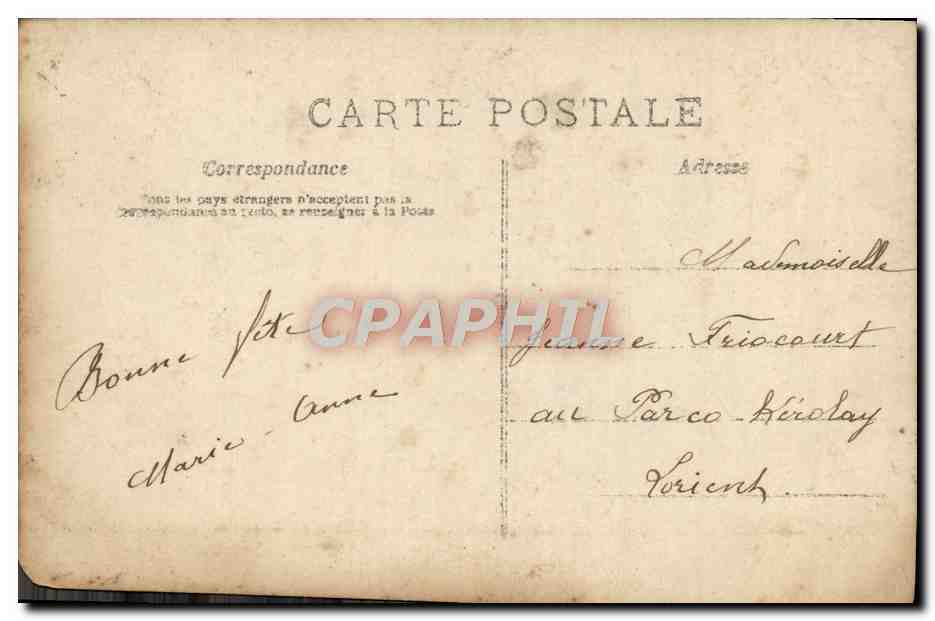 CARTE POSTALE
Correspondance
Tous les pays étrangers n'acceptent pas la
correspondance au recto, se renseigner à la Poste
Adresse
Bonne fête
Marie-Anne
Mademoiselle
Jeanne Friocourt
au Parco-Kérolay
Lorient.
CPAPHIL